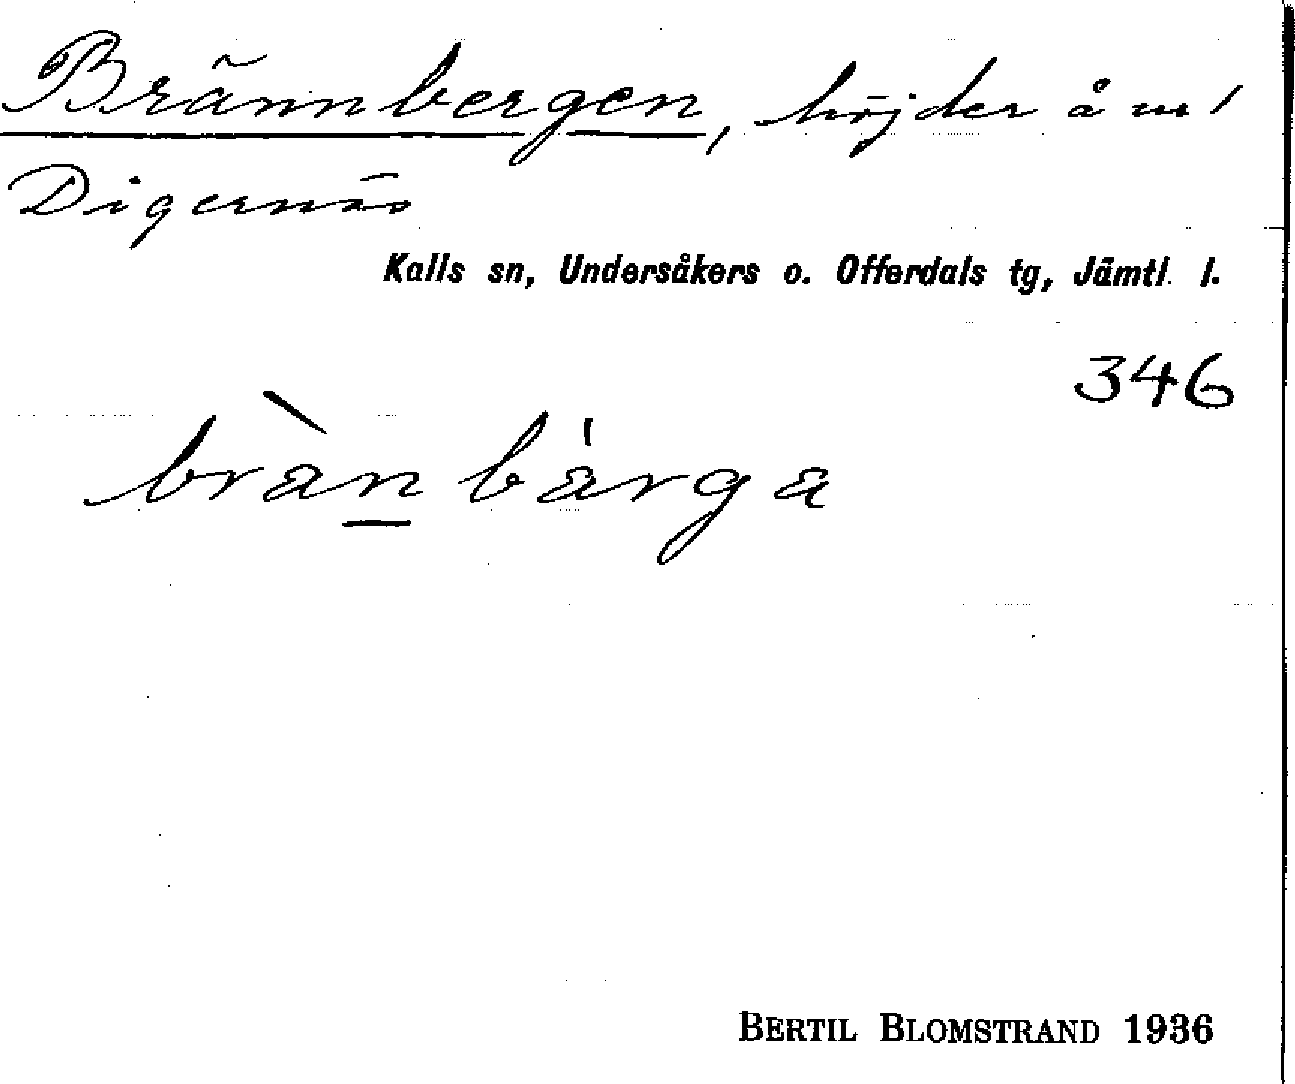 Brännbergen, höjder å m1
Digernäs
Kalls sn, Undersåkers o. Offerdals tg, Jämtl. l.
346
brànbárga
BERTIL BLOMSTRAND 1936